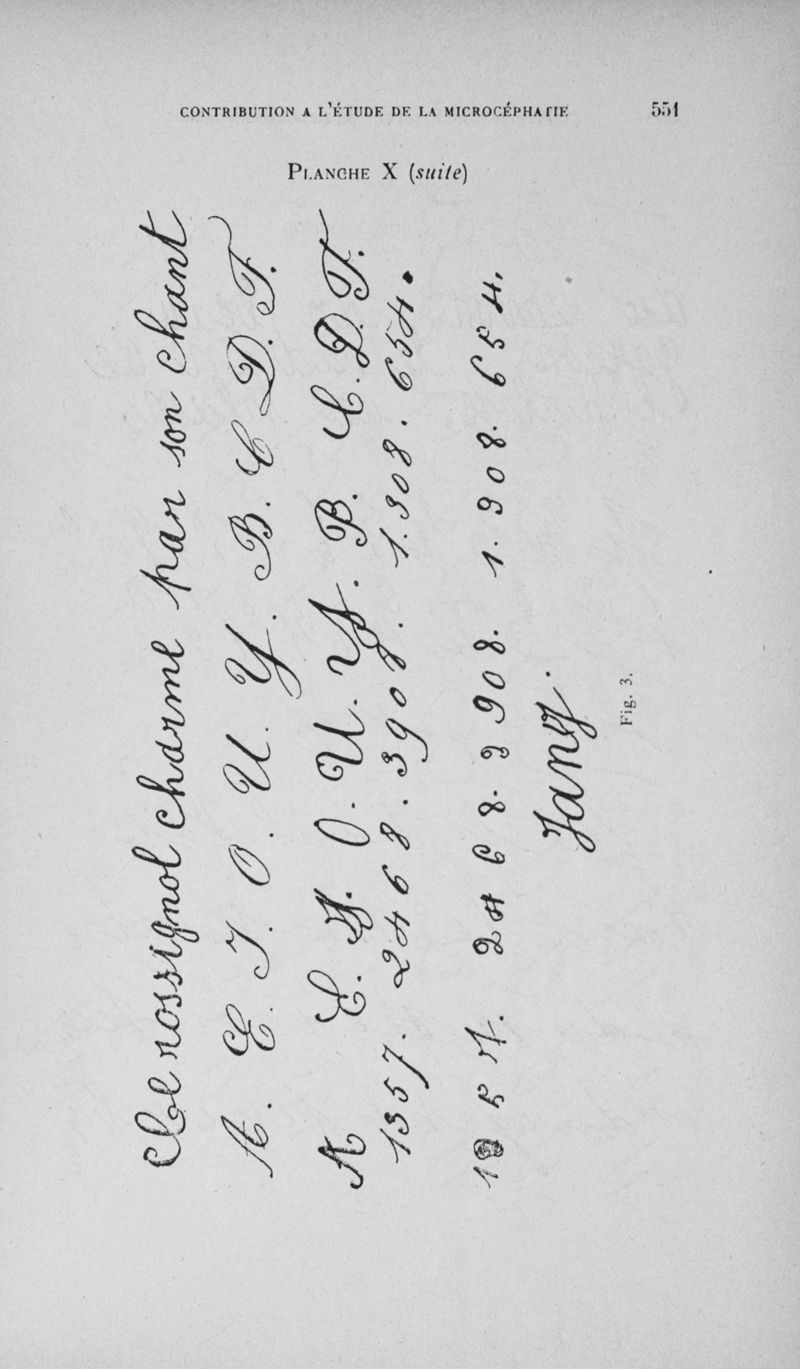 CONTRIBUTION A L'ÉTUDE DE LA MICROCÉPHALIE 551
PLANCHE X (suite)
Le rossignol charme par son chant
A. E. I. O. U. Y. B. C D. F.
A E. Y. O. U. Y. B. C. D. F.
1357. 2468. 3908. 1.308. 654.
5 7. 2468. 3908. 1. 908. 654.
Jany.
Fig. 3.